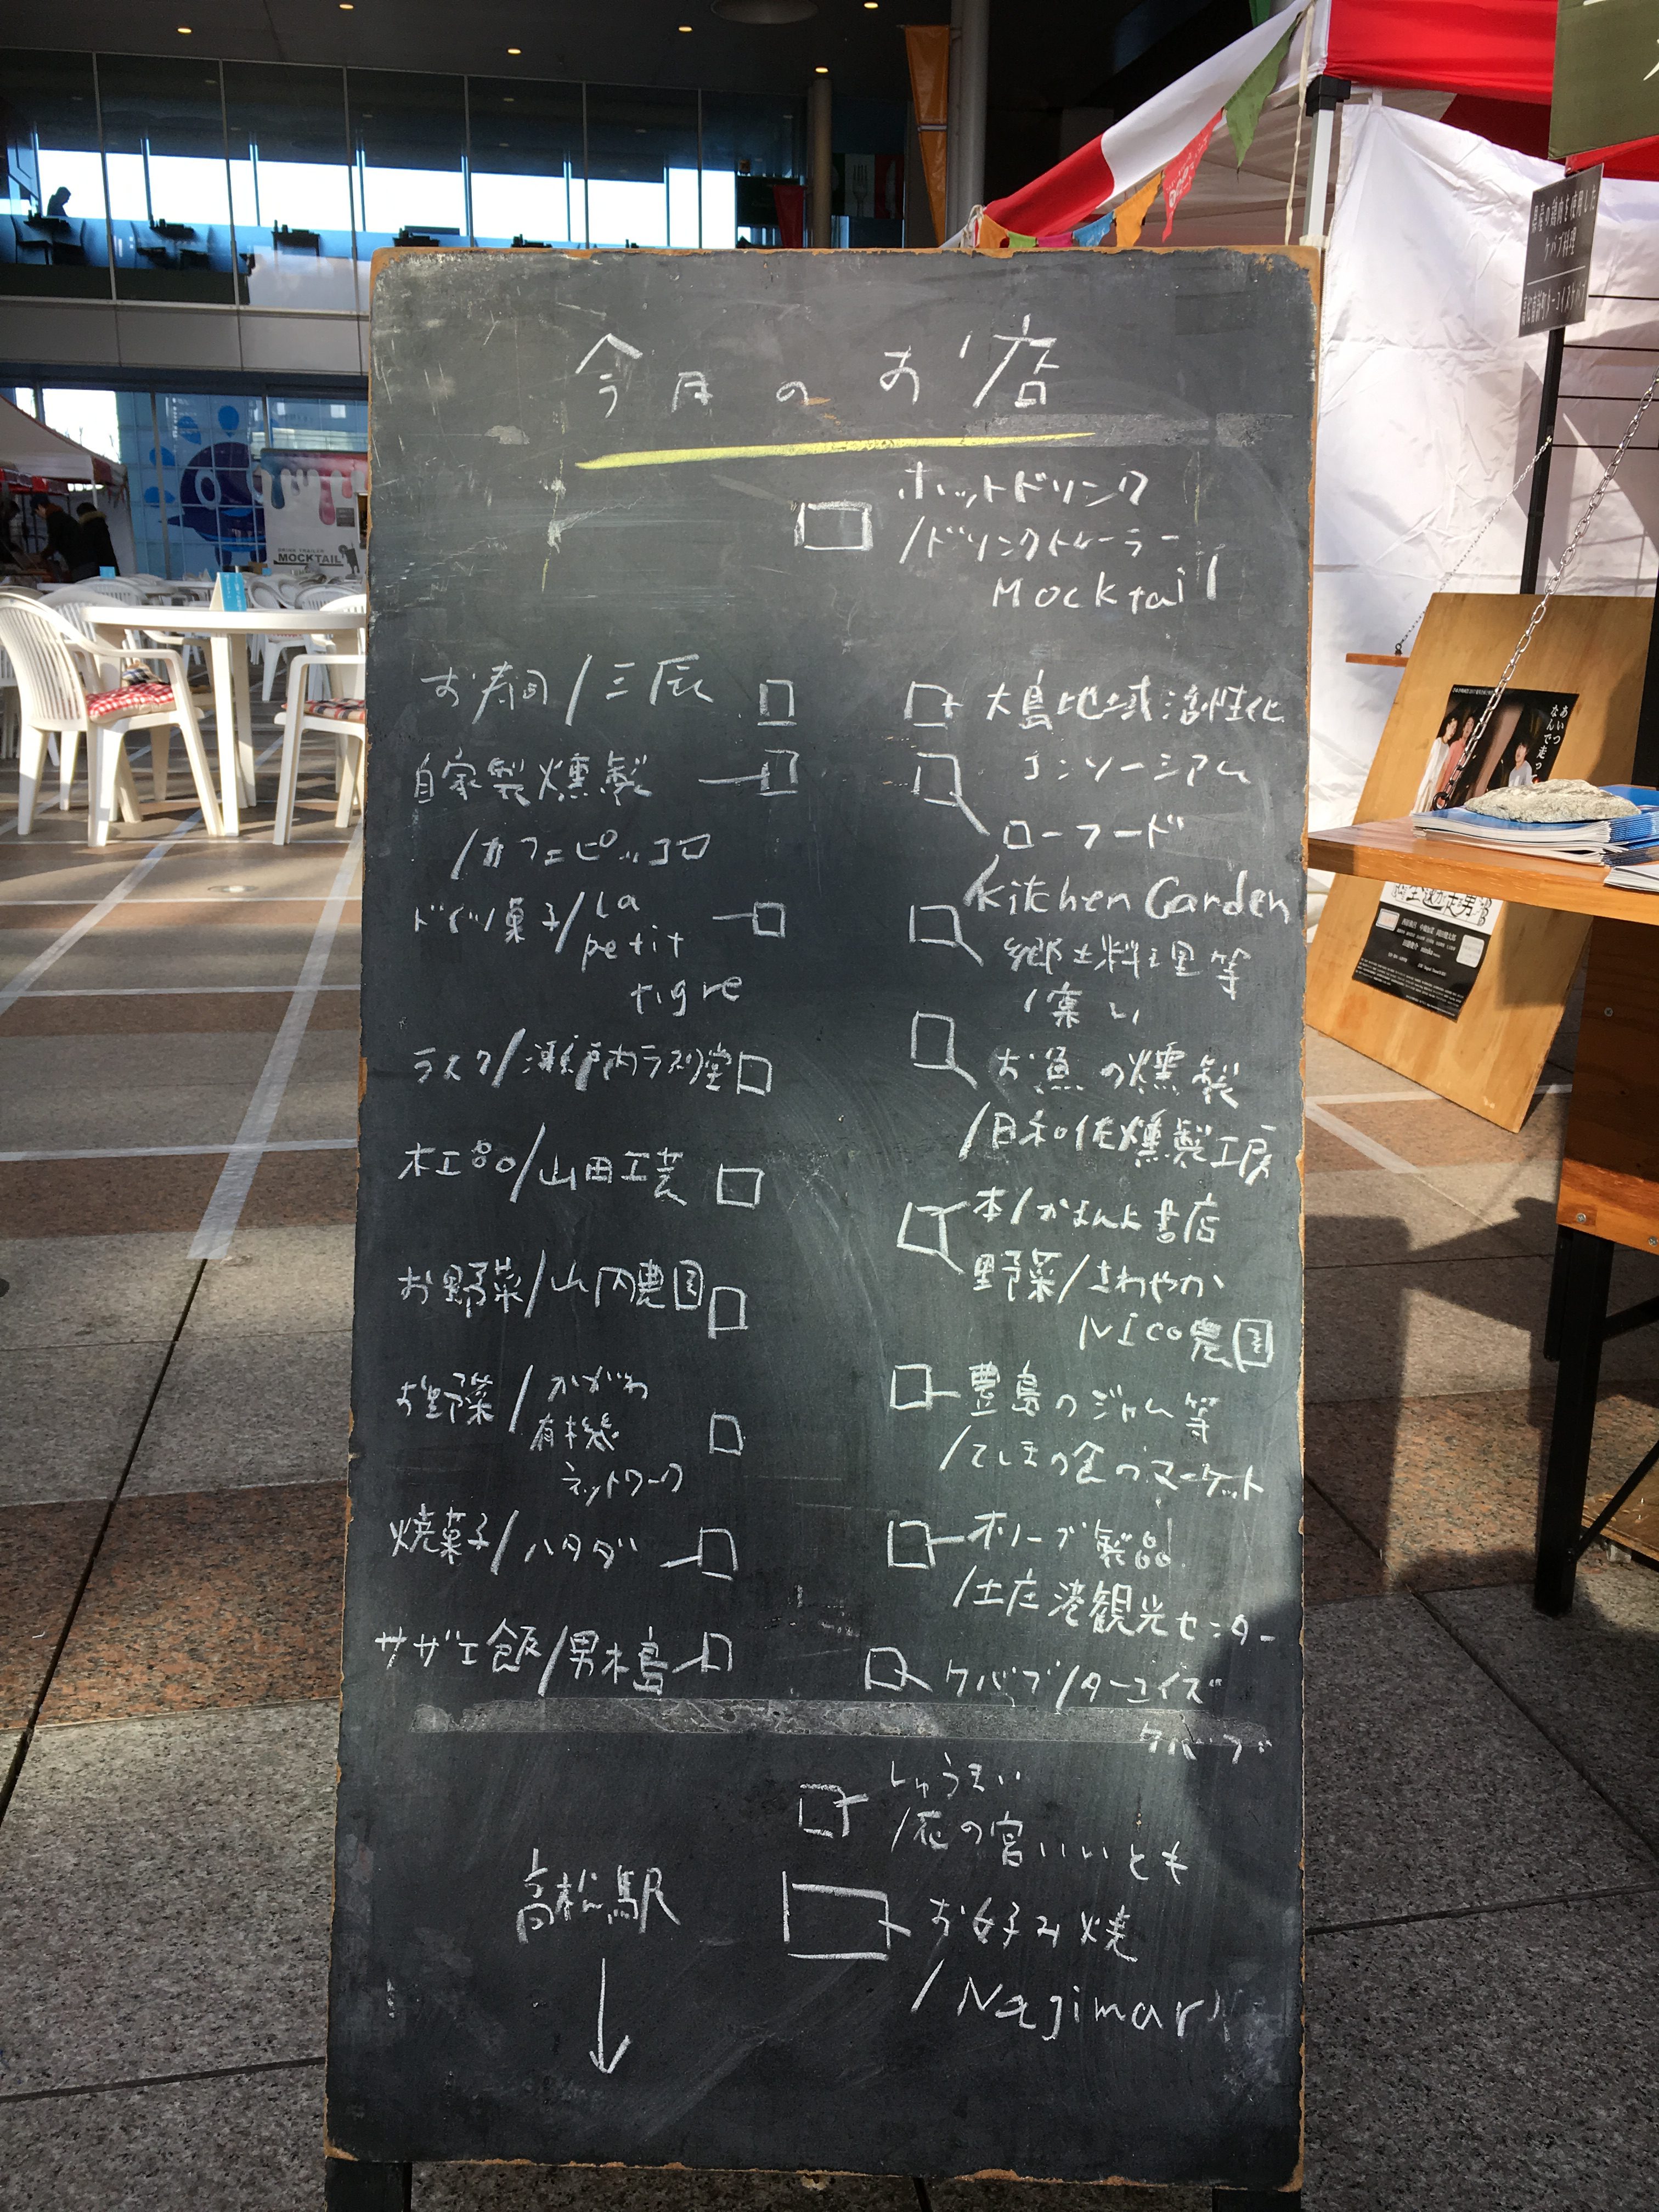 今月のお店
ホットドリンク
/ドリンクトレーラー
Mocktail
お寿司/三辰
自家製燻製
/カフェピッコロ
ドイツ菓子/La
petit
tigre
ラスク/瀬戸内ラスク堂
木工品/山田工芸
お野菜/山内農園
お野菜/かがわ
有機
ネットワーク
焼菓子/ハタダ
サザエ飯/男木島
大島地域活性化
コンソーシアム
ローフード
Kitchen Garden
郷土料理等
/憩い
お魚の燻製
/日和佐燻製工房
本/かまんよ書店
野菜/さわやか
Nico農園
豊島のジャム等
/てしまの食のマーケット
オリーブ製品
/土庄港観光センター
ケバブ/ターコイズ
ケバブ
しゅうまい
/の宮いいとも
お好み焼
/Nagimar
高松駅
県産の鶏肉を使用した
ケバブ料理
DRINK TRAILER
MOCKTAIL
あいつ
なんで走っ